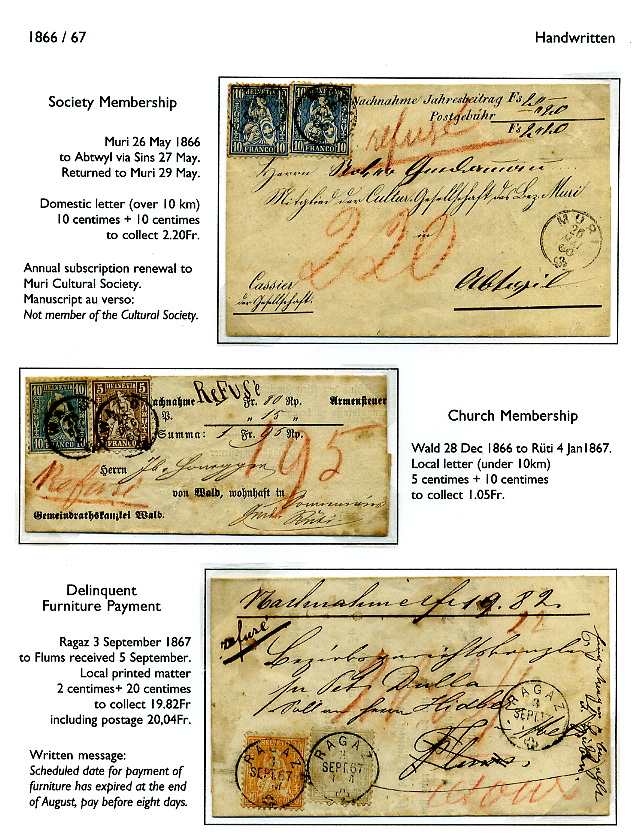 1866 / 67
Handwritten
Society Membership
Muri 26 May 1866
to Abtwyl via Sins 27 May.
Returned to Muri 29 May.
Domestic letter (over 10 km)
10 centimes + 10 centimes
to collect 2.20Fr.
Annual subscription renewal to
Muri Cultural Society.
Manuscript au verso:
Not member of the Cultural Society.
10 HELVETIA 10
10 FRANCO 10
10 HELVETIA
10 FRANCO 10
Nachnahme Jahresbeitrag Fs
Postgebühr
Fs
refusé
Herrn
Mitglied der Cultur. Gesellschaft des Bez. Muri
in
220
MURI
Cassier
der Gesellschaft.
Abtwyl
10 HELVETIA 10
10 FRANCO 10
5 HELVETIA 5
5 FRANCO 5
Refuse
Nachnahme Fr. 80 Rp. Armensteuer
P. " 15 "
Summa: 1 Fr. 95 Rp.
195
Refusé
Herrn
von Wald, wohnhaft in
Gemeindrathskanzlei Wald.
Rüti
Church Membership
Wald 28 Dec 1866 to Rüti 4 Jan1867.
Local letter (under 10km)
5 centimes + 10 centimes
to collect 1.05Fr.
Delinquent
Furniture Payment
Ragaz 3 September 1867
to Flums received 5 September.
Local printed matter
2 centimes+ 20 centimes
to collect 19.82Fr
including postage 20,04Fr.
Written message:
Scheduled date for payment of
furniture has expired at the end
of August, pay before eight days.
Nachnahme fr 19.82
refusé
Bezirksgerichtskanzlei
Flums
RAGAZ
3
SEPT.67
RAGAZ
SEPT.67
RAGAZ
SEPT.67